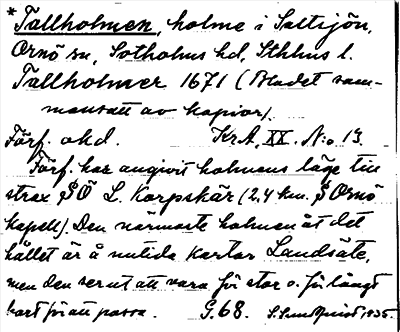 * Tallholmen, holme i Saltsjön,
Ornö sn, Sotholms hd, Sthlms l.
Tallholmer 1671 (Bladet sam-
mansatt av kopior).
Förf. okd. KrA, XX. N:o 13.
Förf. har angivit holmens läge till
strax SÖ L. Korpskär (2,4 km. S Ornö
kapell). Den närmaste holmen åt det
hållet är å nutida kartor Landsäte,
men den ser ut att vara för stor o. för långt
bort för att passa. G.68. S. Lundqvist 1935.